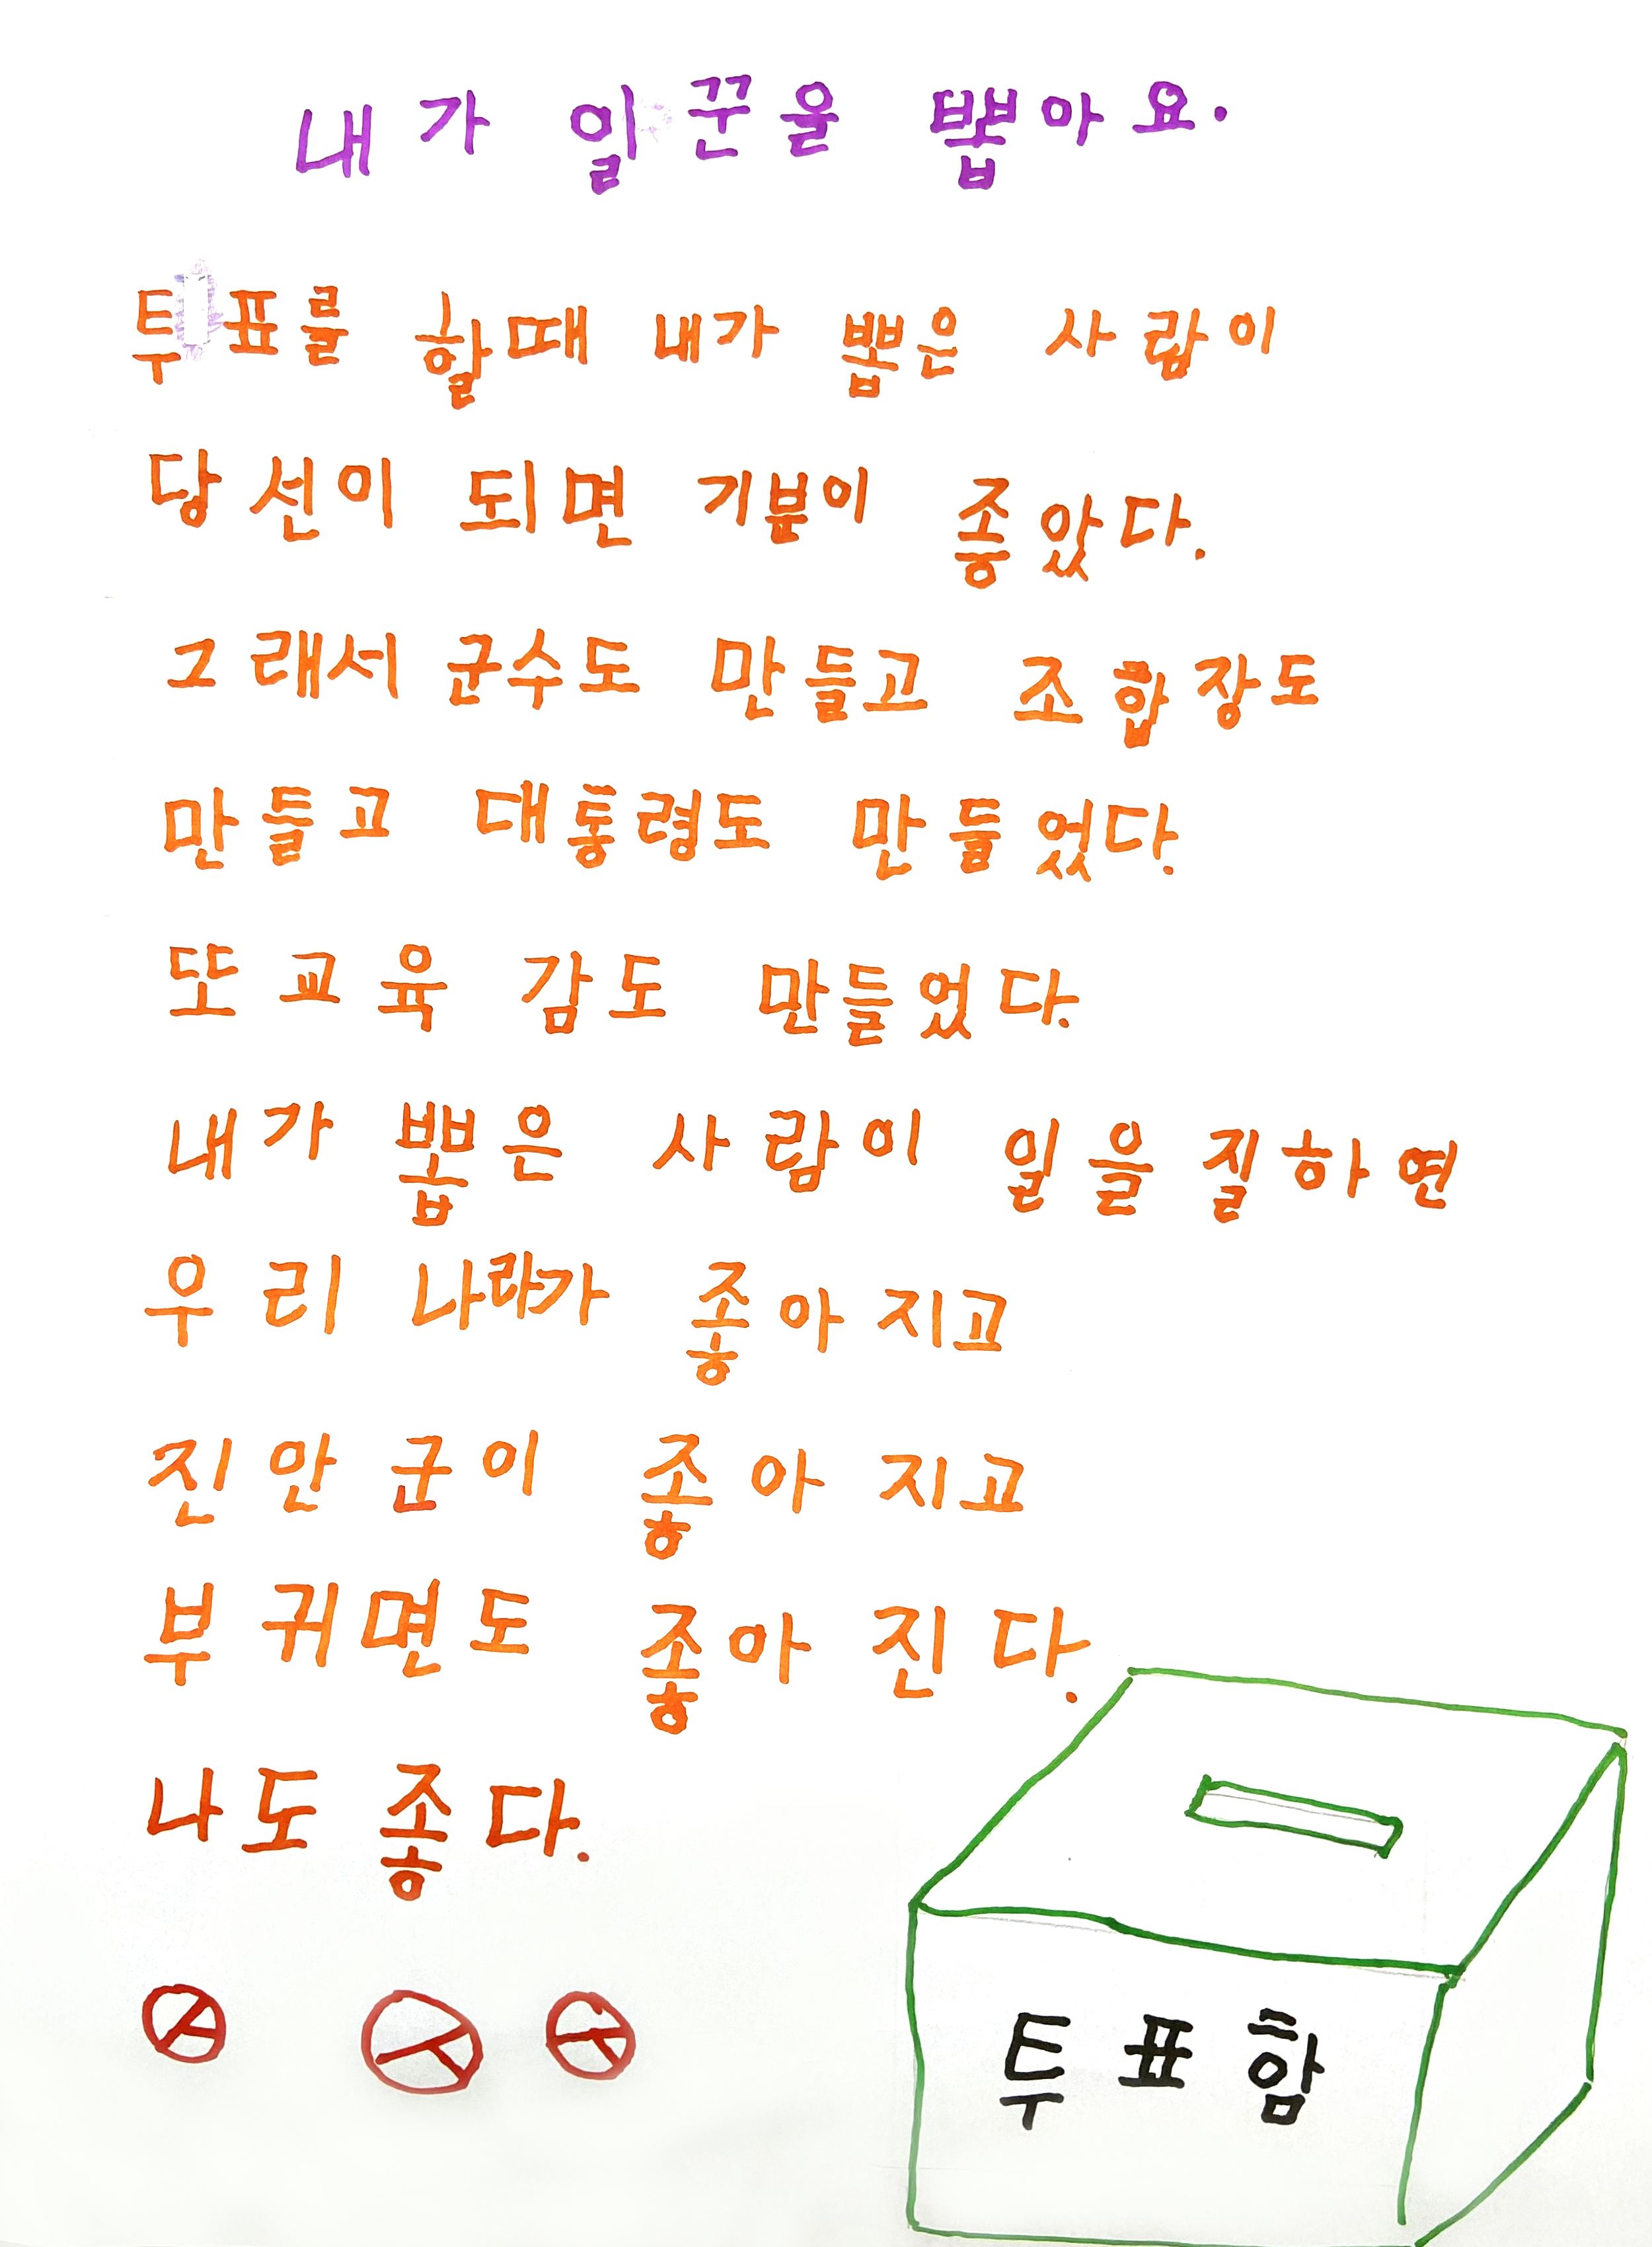 내가 일꾼을 뽑아요.
투표를 할때 내가 뽑은 사람이
당선이 되면 기분이 좋았다.
그래서 군수도 만들고 조합장도
만들고 대통령도 만들었다.
또 교육 감도 만들었다.
내가 뽑은 사람이 일을 질하면
우리 나라가 좋아지고
진안군이 좋아지고
부귀면도 좋아진다.
나도 좋다.
투표함